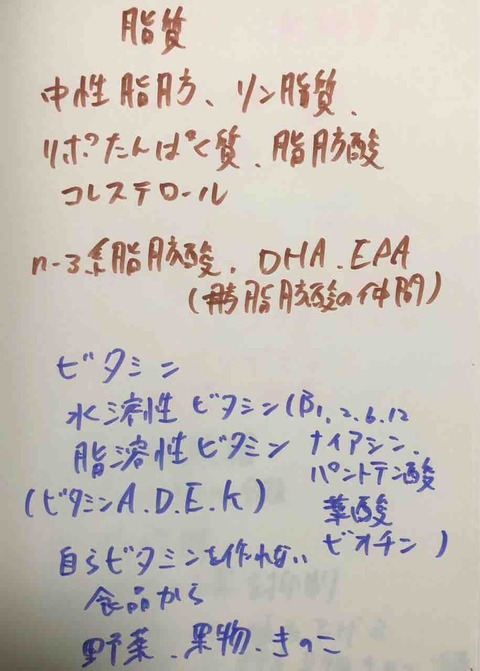 脂質
中性脂肪、リン脂質、
リポたんぱく質、脂肪酸
コレステロール
n-3系脂肪酸、DHA、EPA
(脂肪酸の仲間)
ビタミン
水溶性ビタミン(B1,2,6,12
ナイアシン、
パントテン酸
葉酸
ビオチン)
脂溶性ビタミン
(ビタミンA.D.E.K)
自らビタミンを作れない
食品から
野菜、果物、きのこ